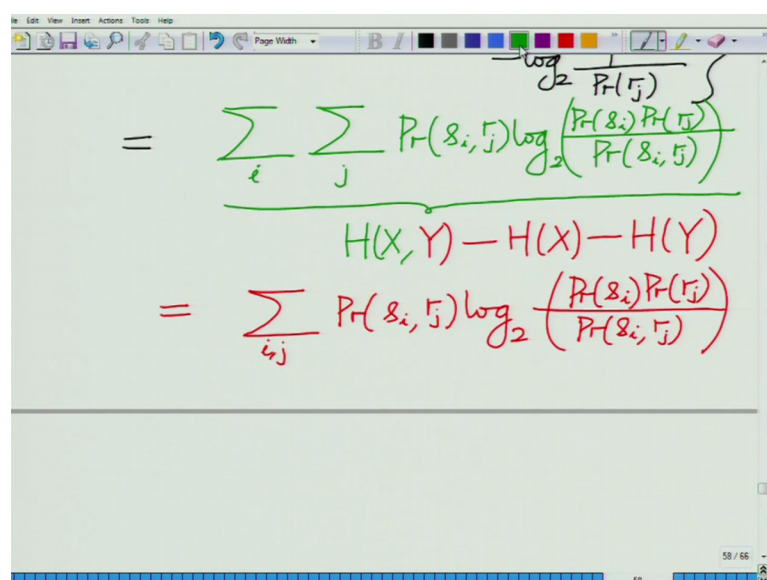 le Edit View Insert Actions Tools Help
Page Width B I
-log₂ 1/Pr(rⱼ) }
= Σᵢ Σⱼ Pr(sᵢ, rⱼ) log₂ (Pr(sᵢ) Pr(rⱼ) / Pr(sᵢ, rⱼ))
H(X, Y) — H(X) — H(Y)
= Σᵢ,ⱼ Pr(sᵢ, rⱼ) log₂ (Pr(sᵢ) Pr(rⱼ) / Pr(sᵢ, rⱼ))
58 / 66
58